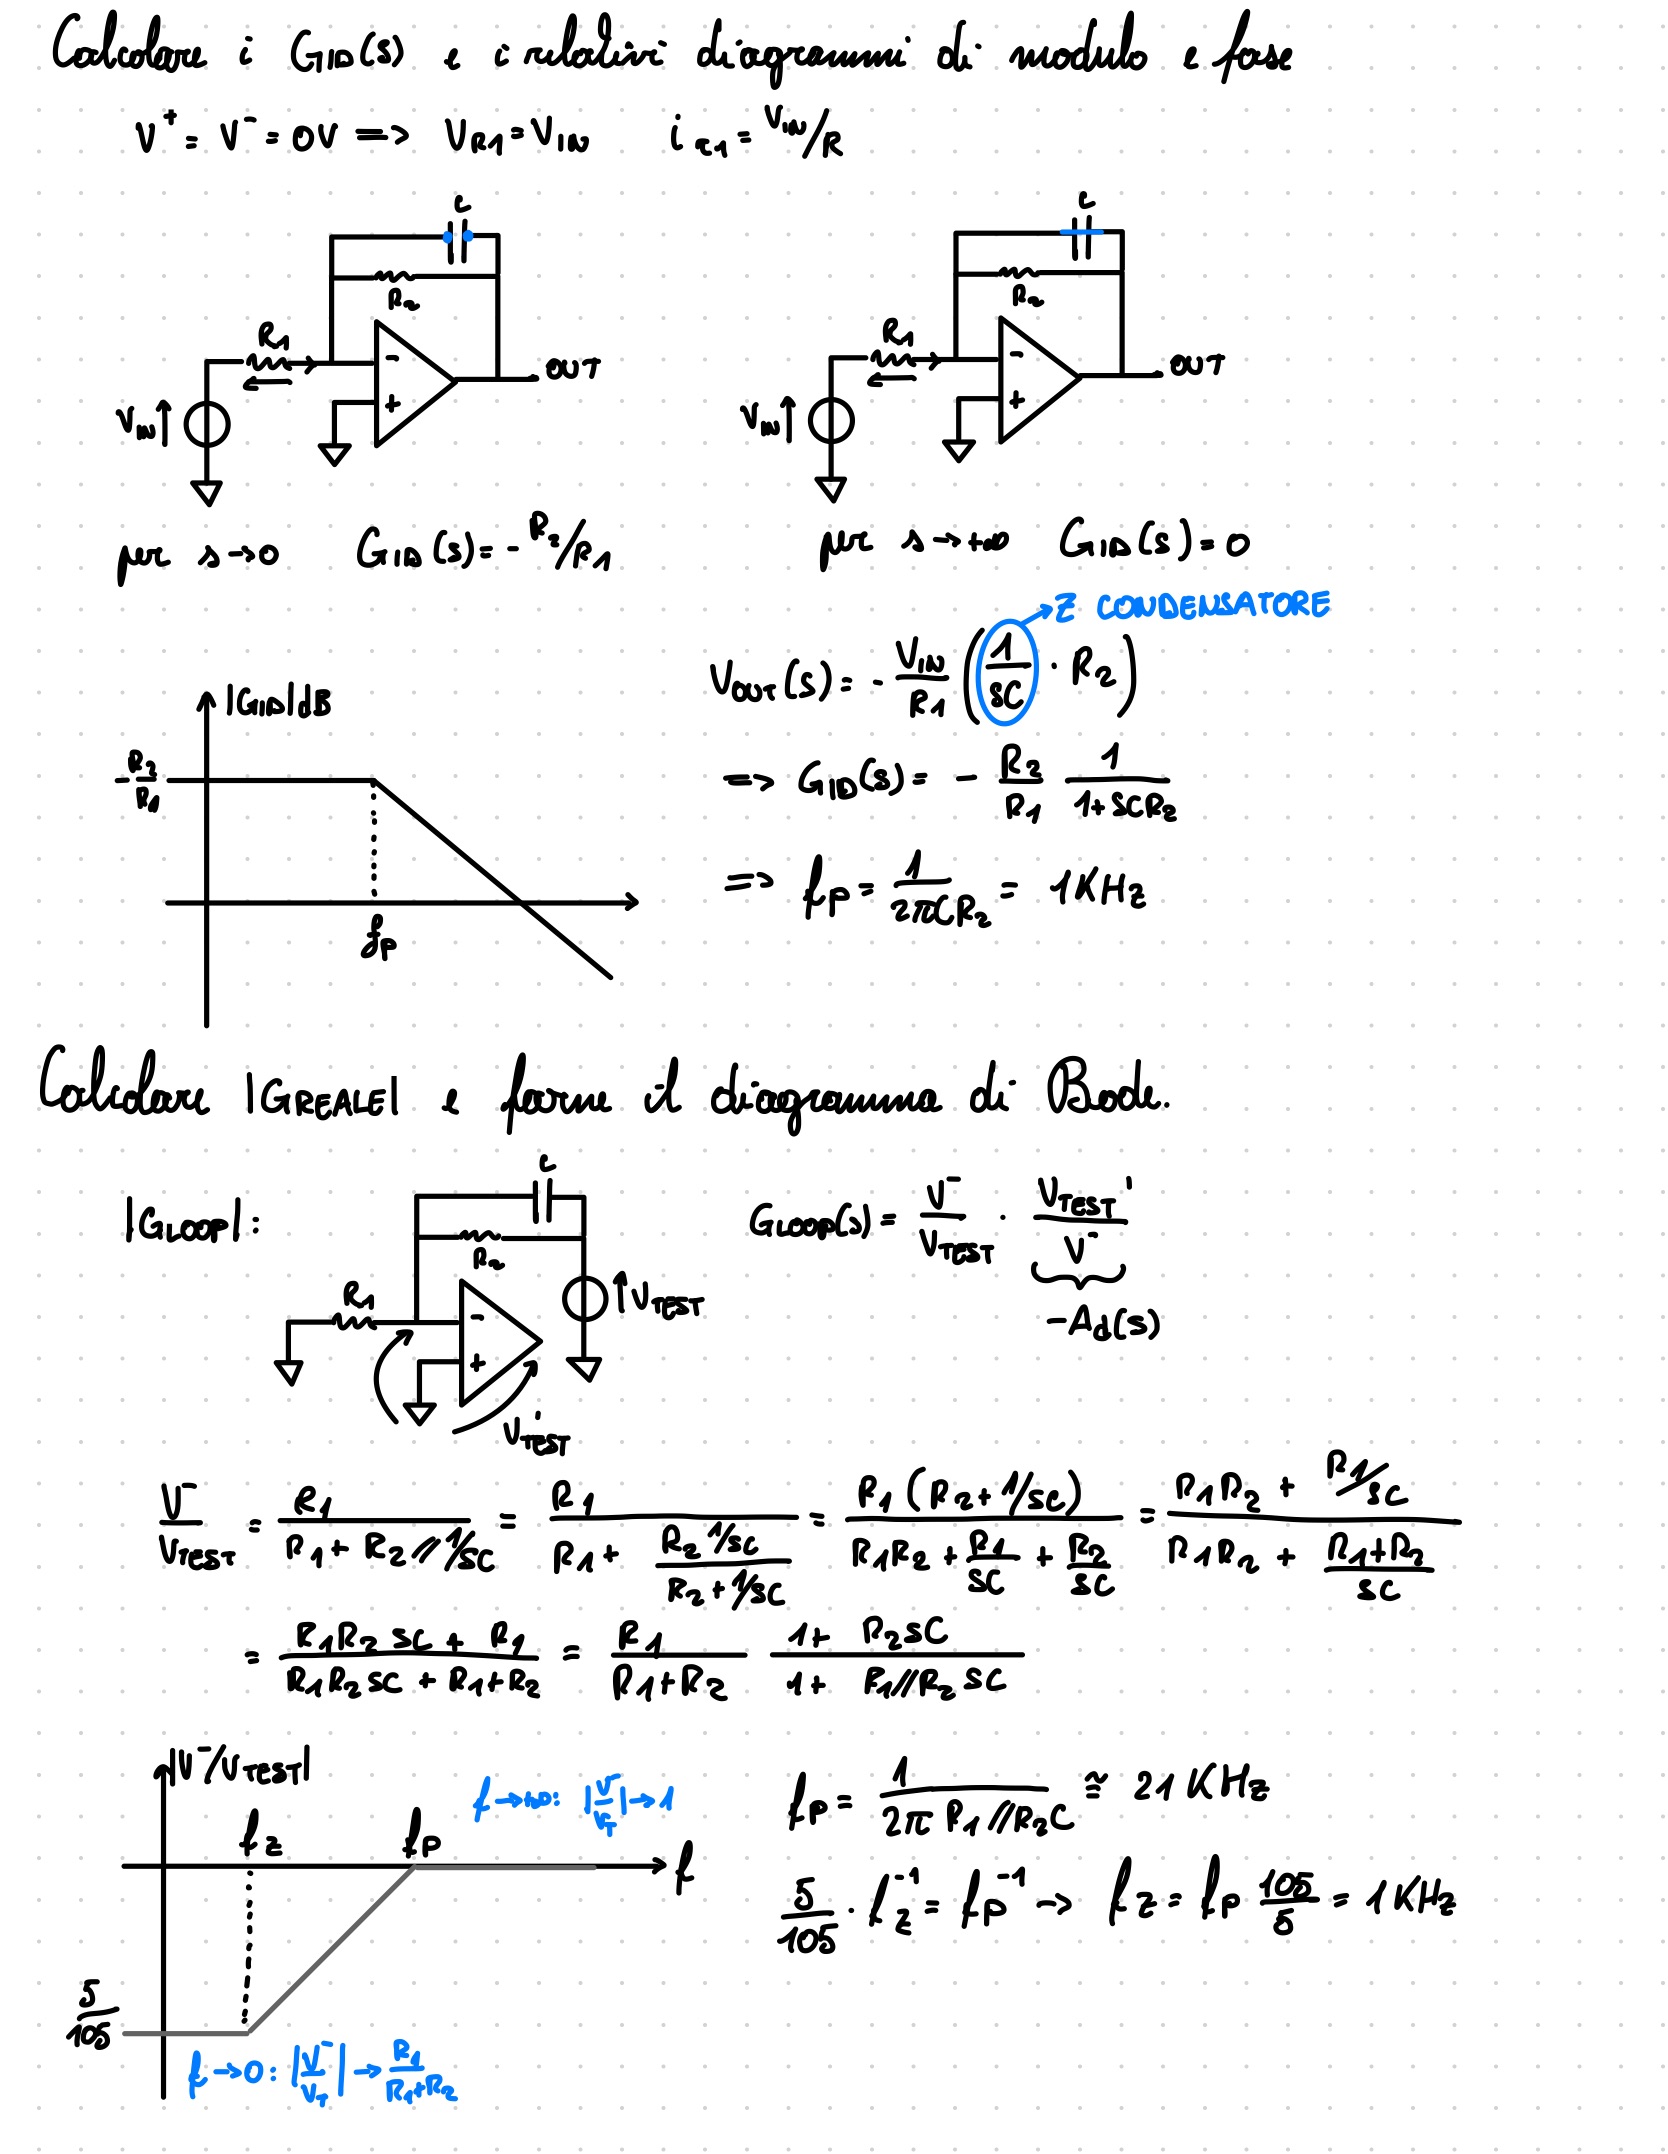 Calcolare i GID(s) e i relativi diagrammi di modulo e fase
V⁺ = V⁻ = 0V => VR1 = VIN   iR1 = VIN/R
C   C
R2   R2
R1   R1
-   -
OUT   OUT
+   +
VIN   VIN
per s→0   GID(s) = - R2/R1   per s→+∞   GID(s) = 0
→ Z CONDENSATORE
VOUT(s) = - VIN/R1 (1/sC · R2)
|GID|dB
- R2/R1
=> GID(s) = - R2/R1 1/(1+SCR2)
=> fP = 1/(2πCR2) = 1KHz
fP
Calcolare |GREALE| e farne il diagramma di Bode.
|GLOOP|:
C
R2
R1
-
+
VTEST
V'TEST
GLOOP(s) = V⁻/VTEST · VTEST'/V⁻
-Ad(s)
V⁻/VTEST = R1/(R1 + R2 // 1/sC) = R1/(R1 + (R2 1/sC)/(R2 + 1/sC)) = R1 (R2 + 1/sC)/(R1R2 + R1/sC + R2/sC) = (R1R2 + R1/sC)/(R1R2 + (R1+R2)/sC)
= (R1R2 sC + R1)/(R1R2 sC + R1+R2) = R1/(R1+R2) (1 + R2sC)/(1 + R1//R2 sC)
|V⁻/VTEST|
f→+∞: |V⁻/VT| → 1
fZ   fP   f
5/105
f→0: |V⁻/VT| → R1/(R1+R2)
fP = 1/(2π R1//R2C) ≅ 21 KHz
5/105 · fZ⁻¹ = fP⁻¹ → fZ = fP 105/5 = 1KHz